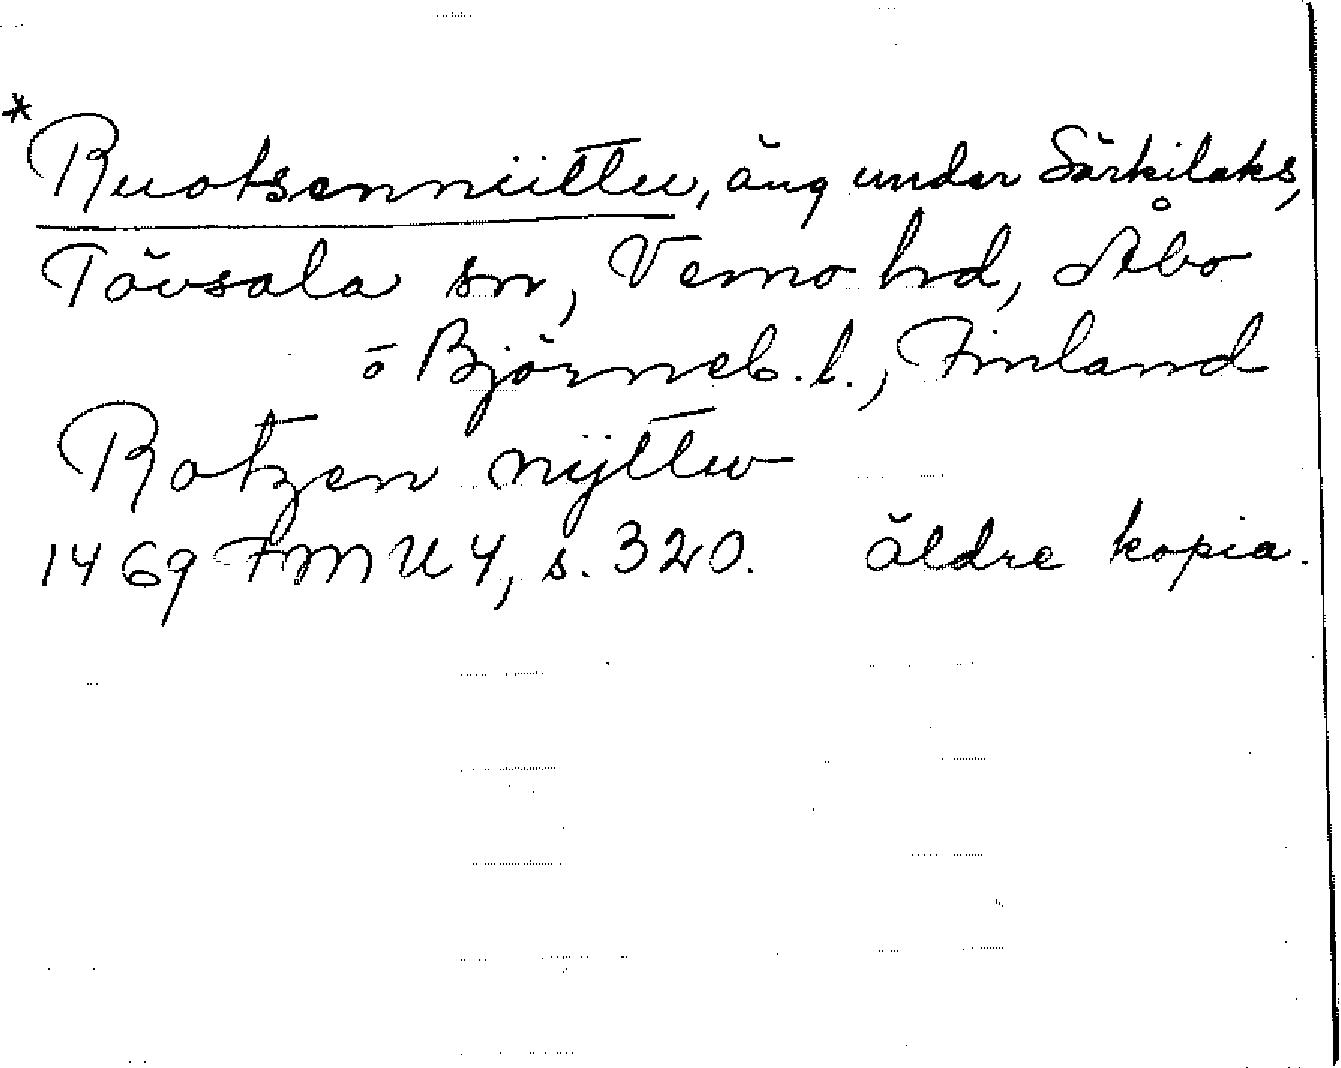 *Ruotsenniittu, äng under Särkilaks,
Tövsala sn, Vemo hd, Åbo
o Björneb. l., Finland
Rotzen nÿttw
1469 FMU 4, s. 320. äldre kopia.